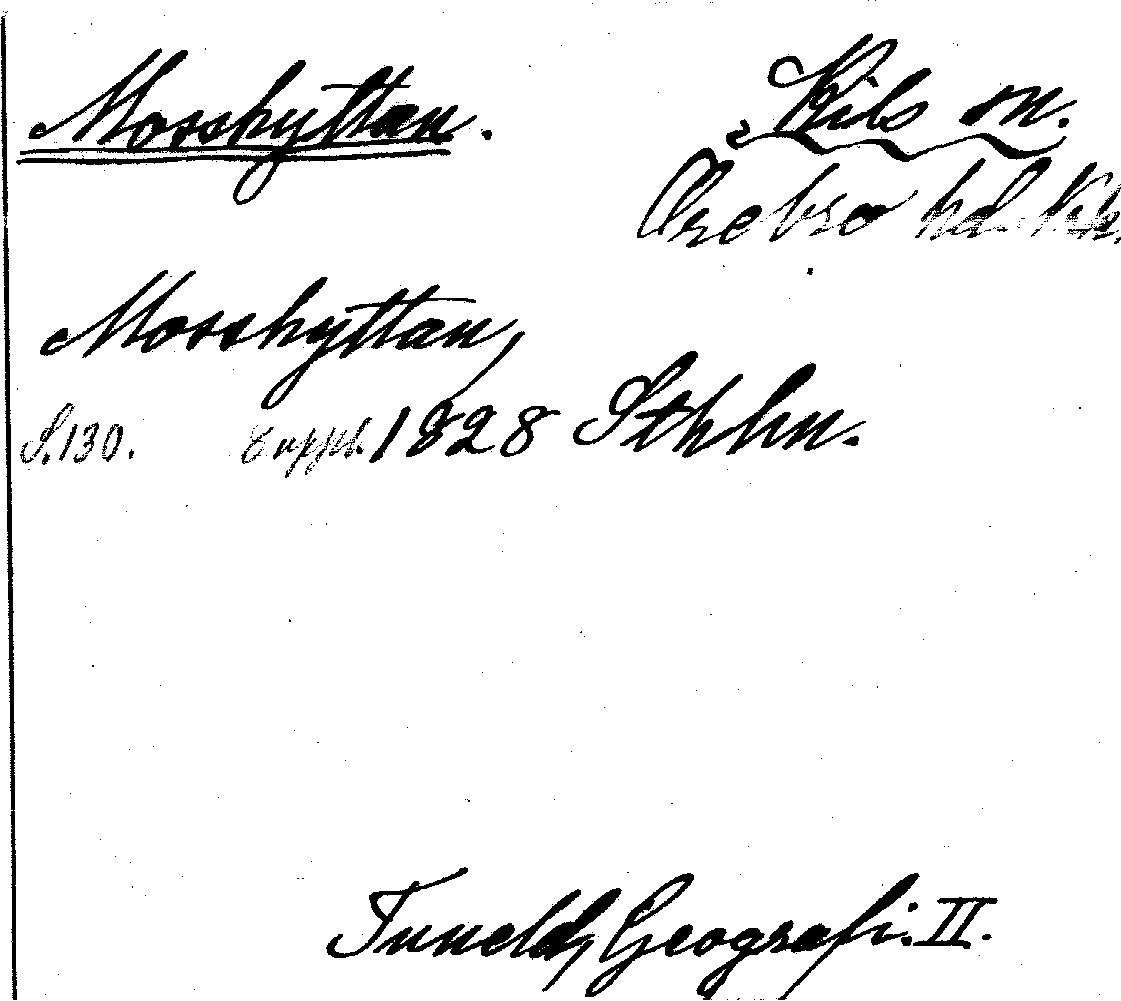 Mosshyttan. Kils sn.
Örebro hd.
Mosshyttan,
S. 130. Uppl. 1828 Sthlm.
Tuneld, Geografi. II.